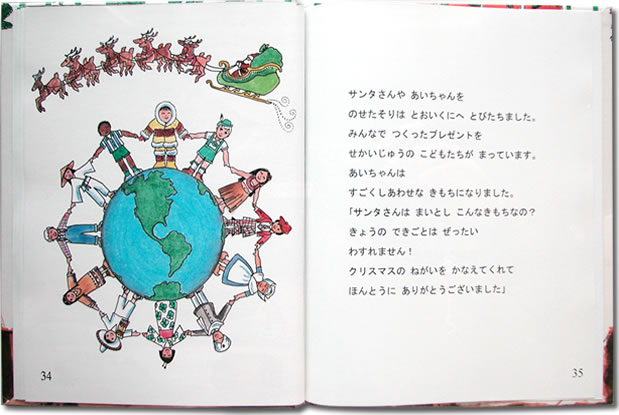 サンタさんや あいちゃんを
のせたそりは とおいくにへ とびたちました。
みんなで つくったプレゼントを
せかいじゅうの こどもたちが まっています。
あいちゃんは
すごくしあわせな きもちになりました。
「サンタさんは まいとし こんなきもちなの？
きょうの できごとは ぜったい
わすれません！
クリスマスの ねがいを かなえてくれて
ほんとうに ありがとうございました」
34
35